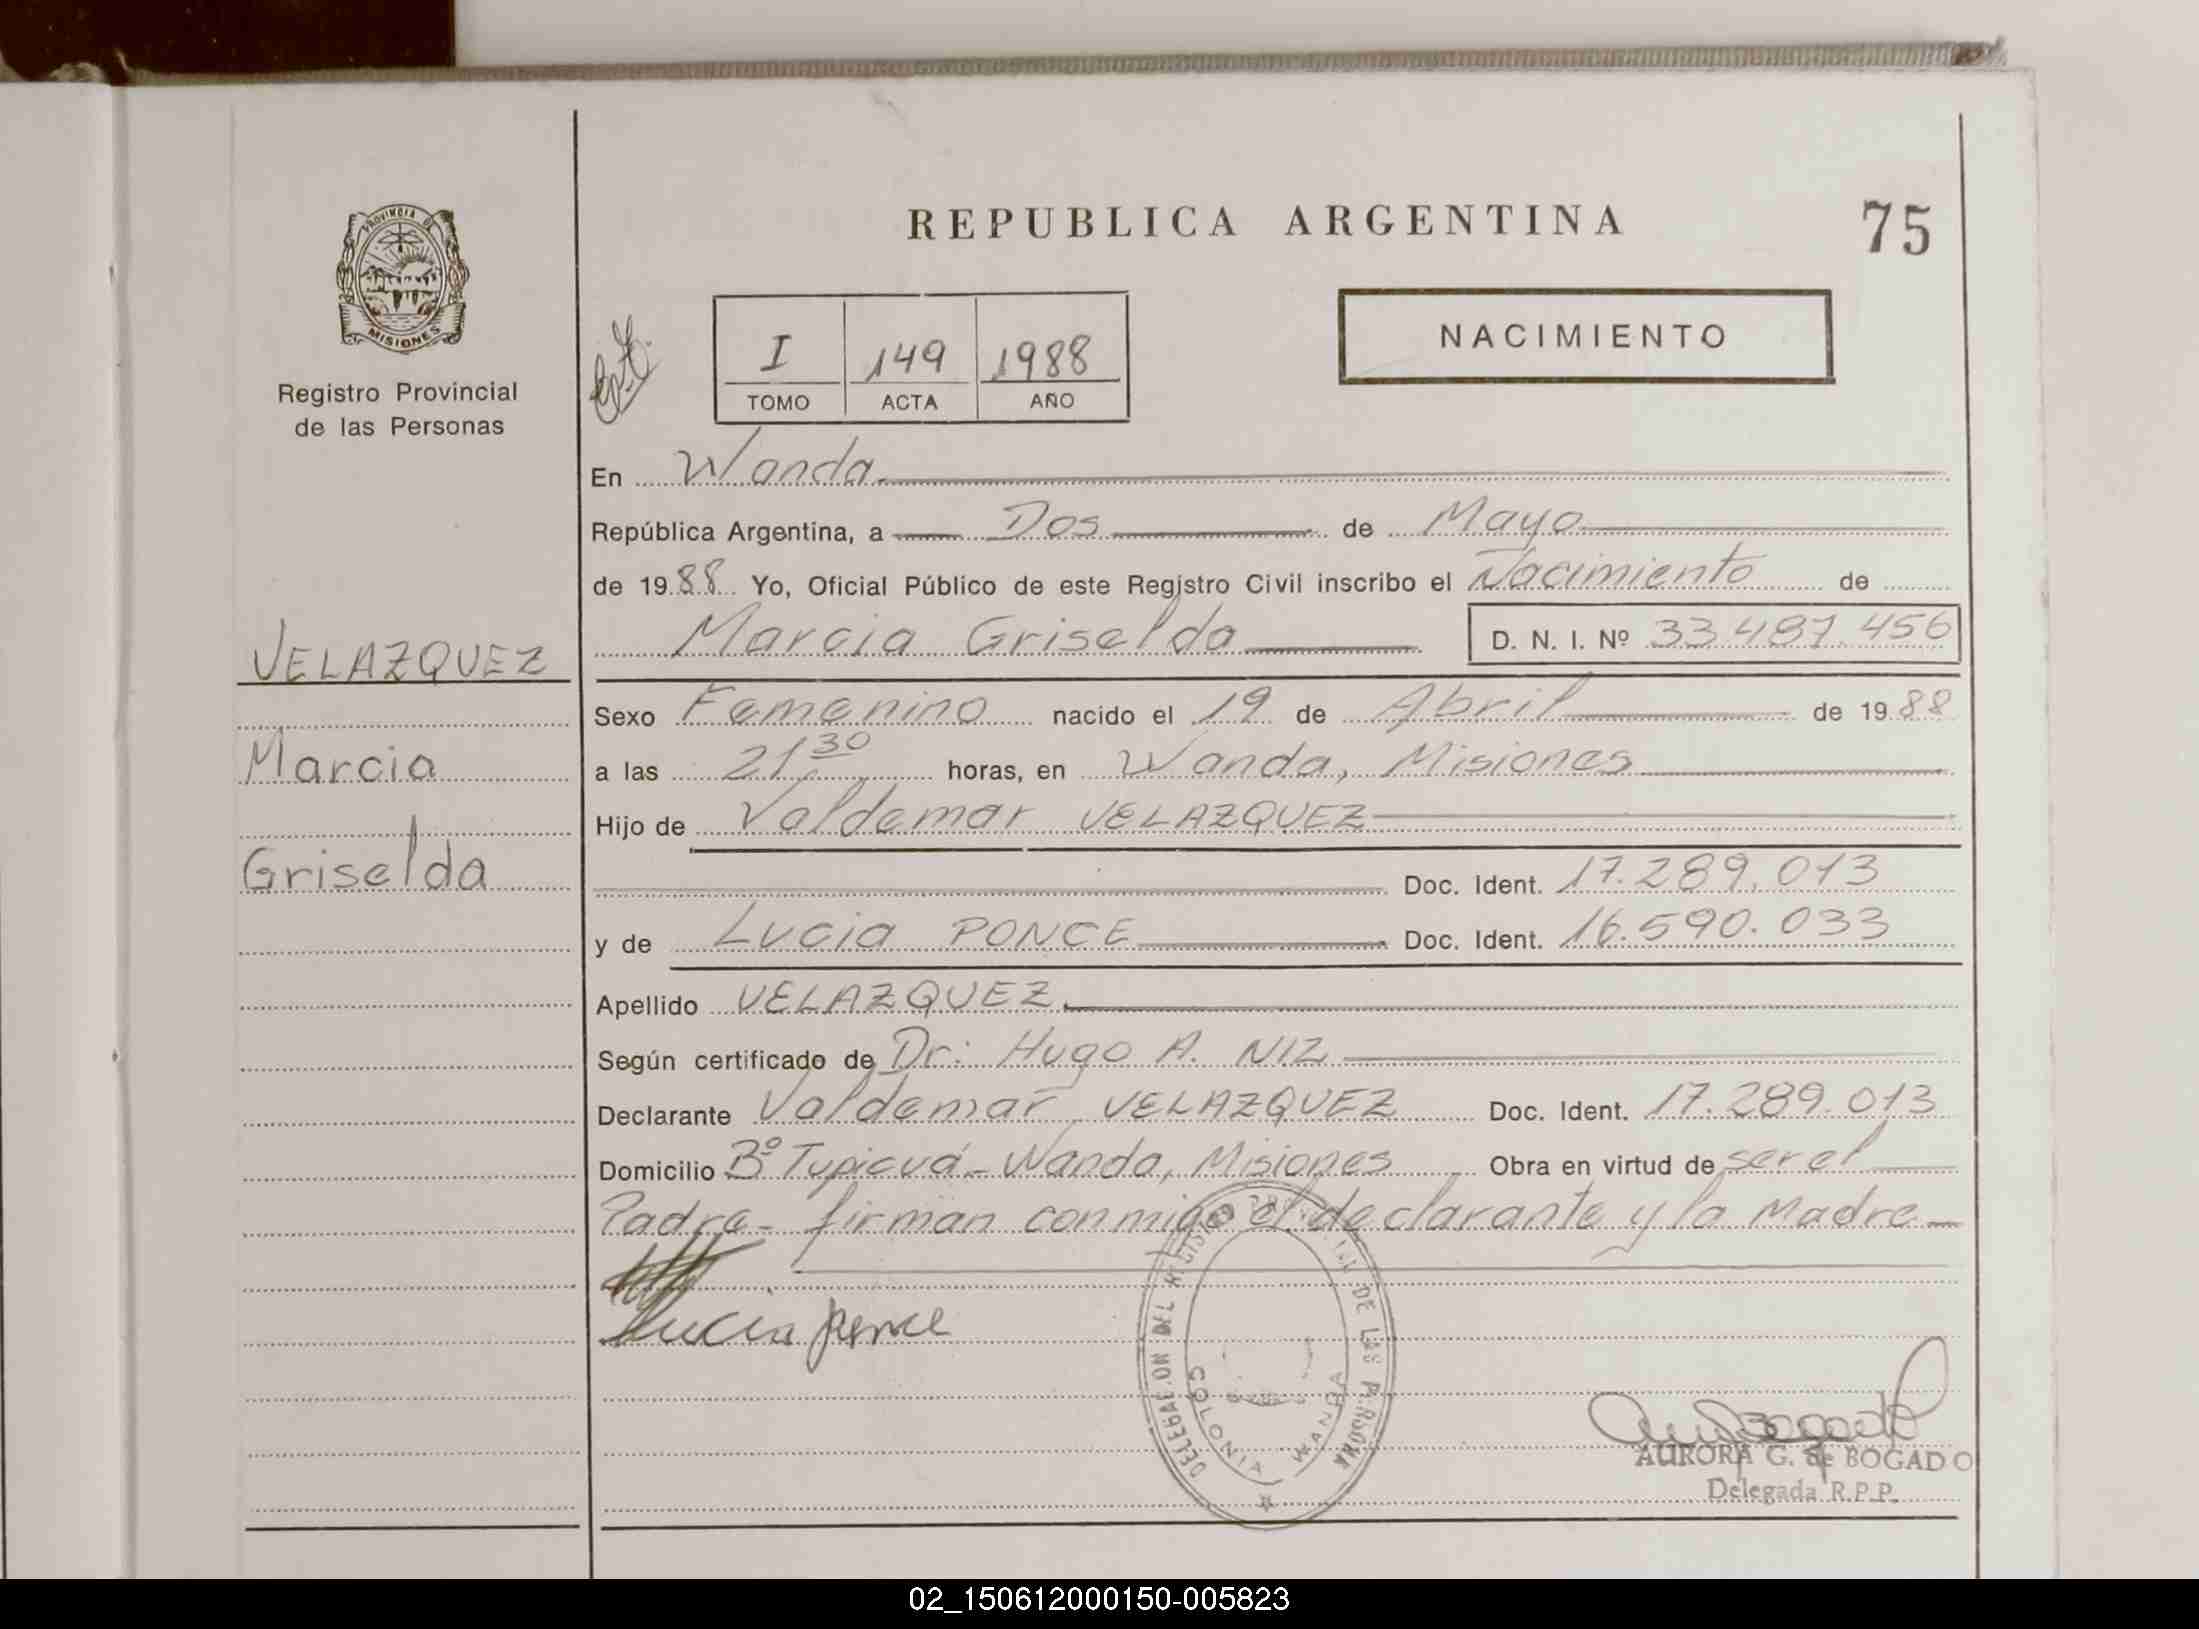 REPUBLICA ARGENTINA
75
PROVINCIA DE
MISIONES
Registro Provincial
de las Personas
I 149 1988
TOMO ACTA AÑO
NACIMIENTO
En Wanda
República Argentina, a Dos de Mayo
de 1988 Yo, Oficial Público de este Registro Civil inscribo el Nacimiento de
Marcia Griselda D. N. I. Nº 33.487.456
VELAZQUEZ
Marcia
Griselda
Sexo Femenino nacido el 19 de Abril de 1988
a las 21,30 horas, en Wanda, Misiones
Hijo de Valdemar VELAZQUEZ
Doc. Ident. 17.289.013
y de Lucia PONCE Doc. Ident. 16.590.033
Apellido VELAZQUEZ
Según certificado de Dr: Hugo A. NIZ
Declarante Valdemar VELAZQUEZ Doc. Ident. 17.289.013
Domicilio Bº Tupicuá - Wanda, Misiones Obra en virtud de ser el
Padre - firman conmigo el declarante y la Madre
Lucia ponce
DELEGACION DEL REGISTRO PROVINCIAL DE LAS PERSONAS
COLONIA WANDA
AURORA G. de BOGADO
Delegada R.P.P.
02_150612000150-005823